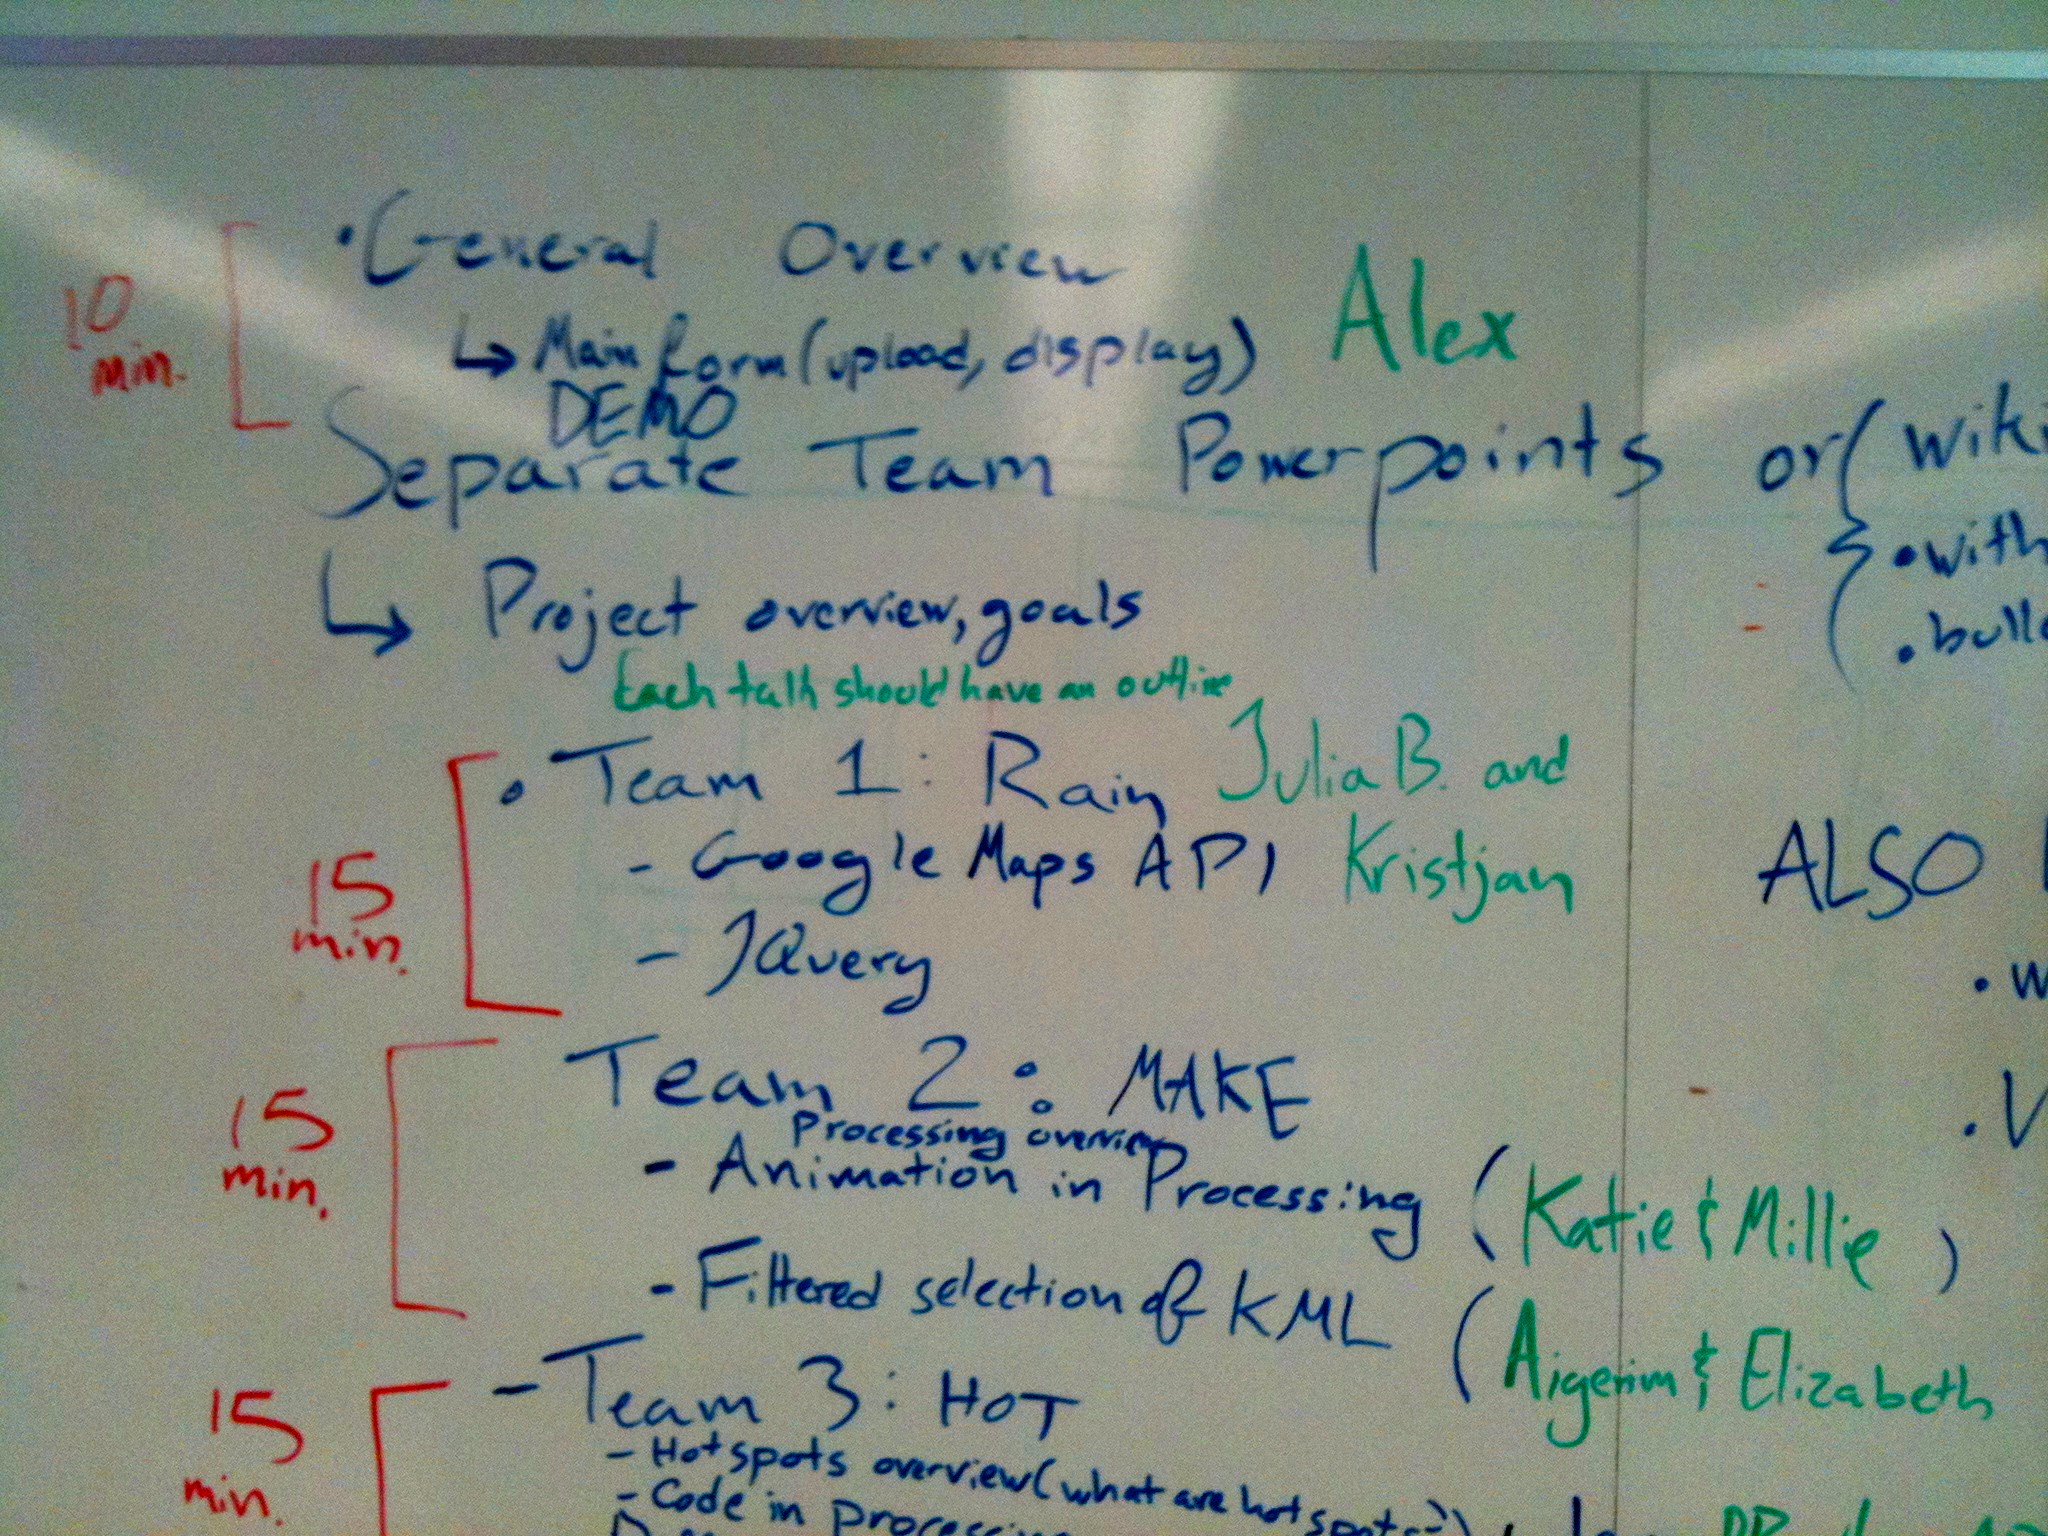 10 min.
• General Overview
↳ Main form (upload, display) Alex
DEMO
Separate Team Powerpoints or (wiki
• with
• bull
↳ Project overview, goals
Each talk should have an outline
15 min.
• Team 1: Rain Julia B. and
- Google Maps API Kristjan
- JQuery
ALSO
15 min.
Team 2: MAKE
Processing overview
- Animation in Processing (Katie & Millie)
- Filtered selection of KML (Aigerim & Elizabeth
15 min.
- Team 3: HOT
- Hotspots overview (what are hotspots?)
- Code in processing